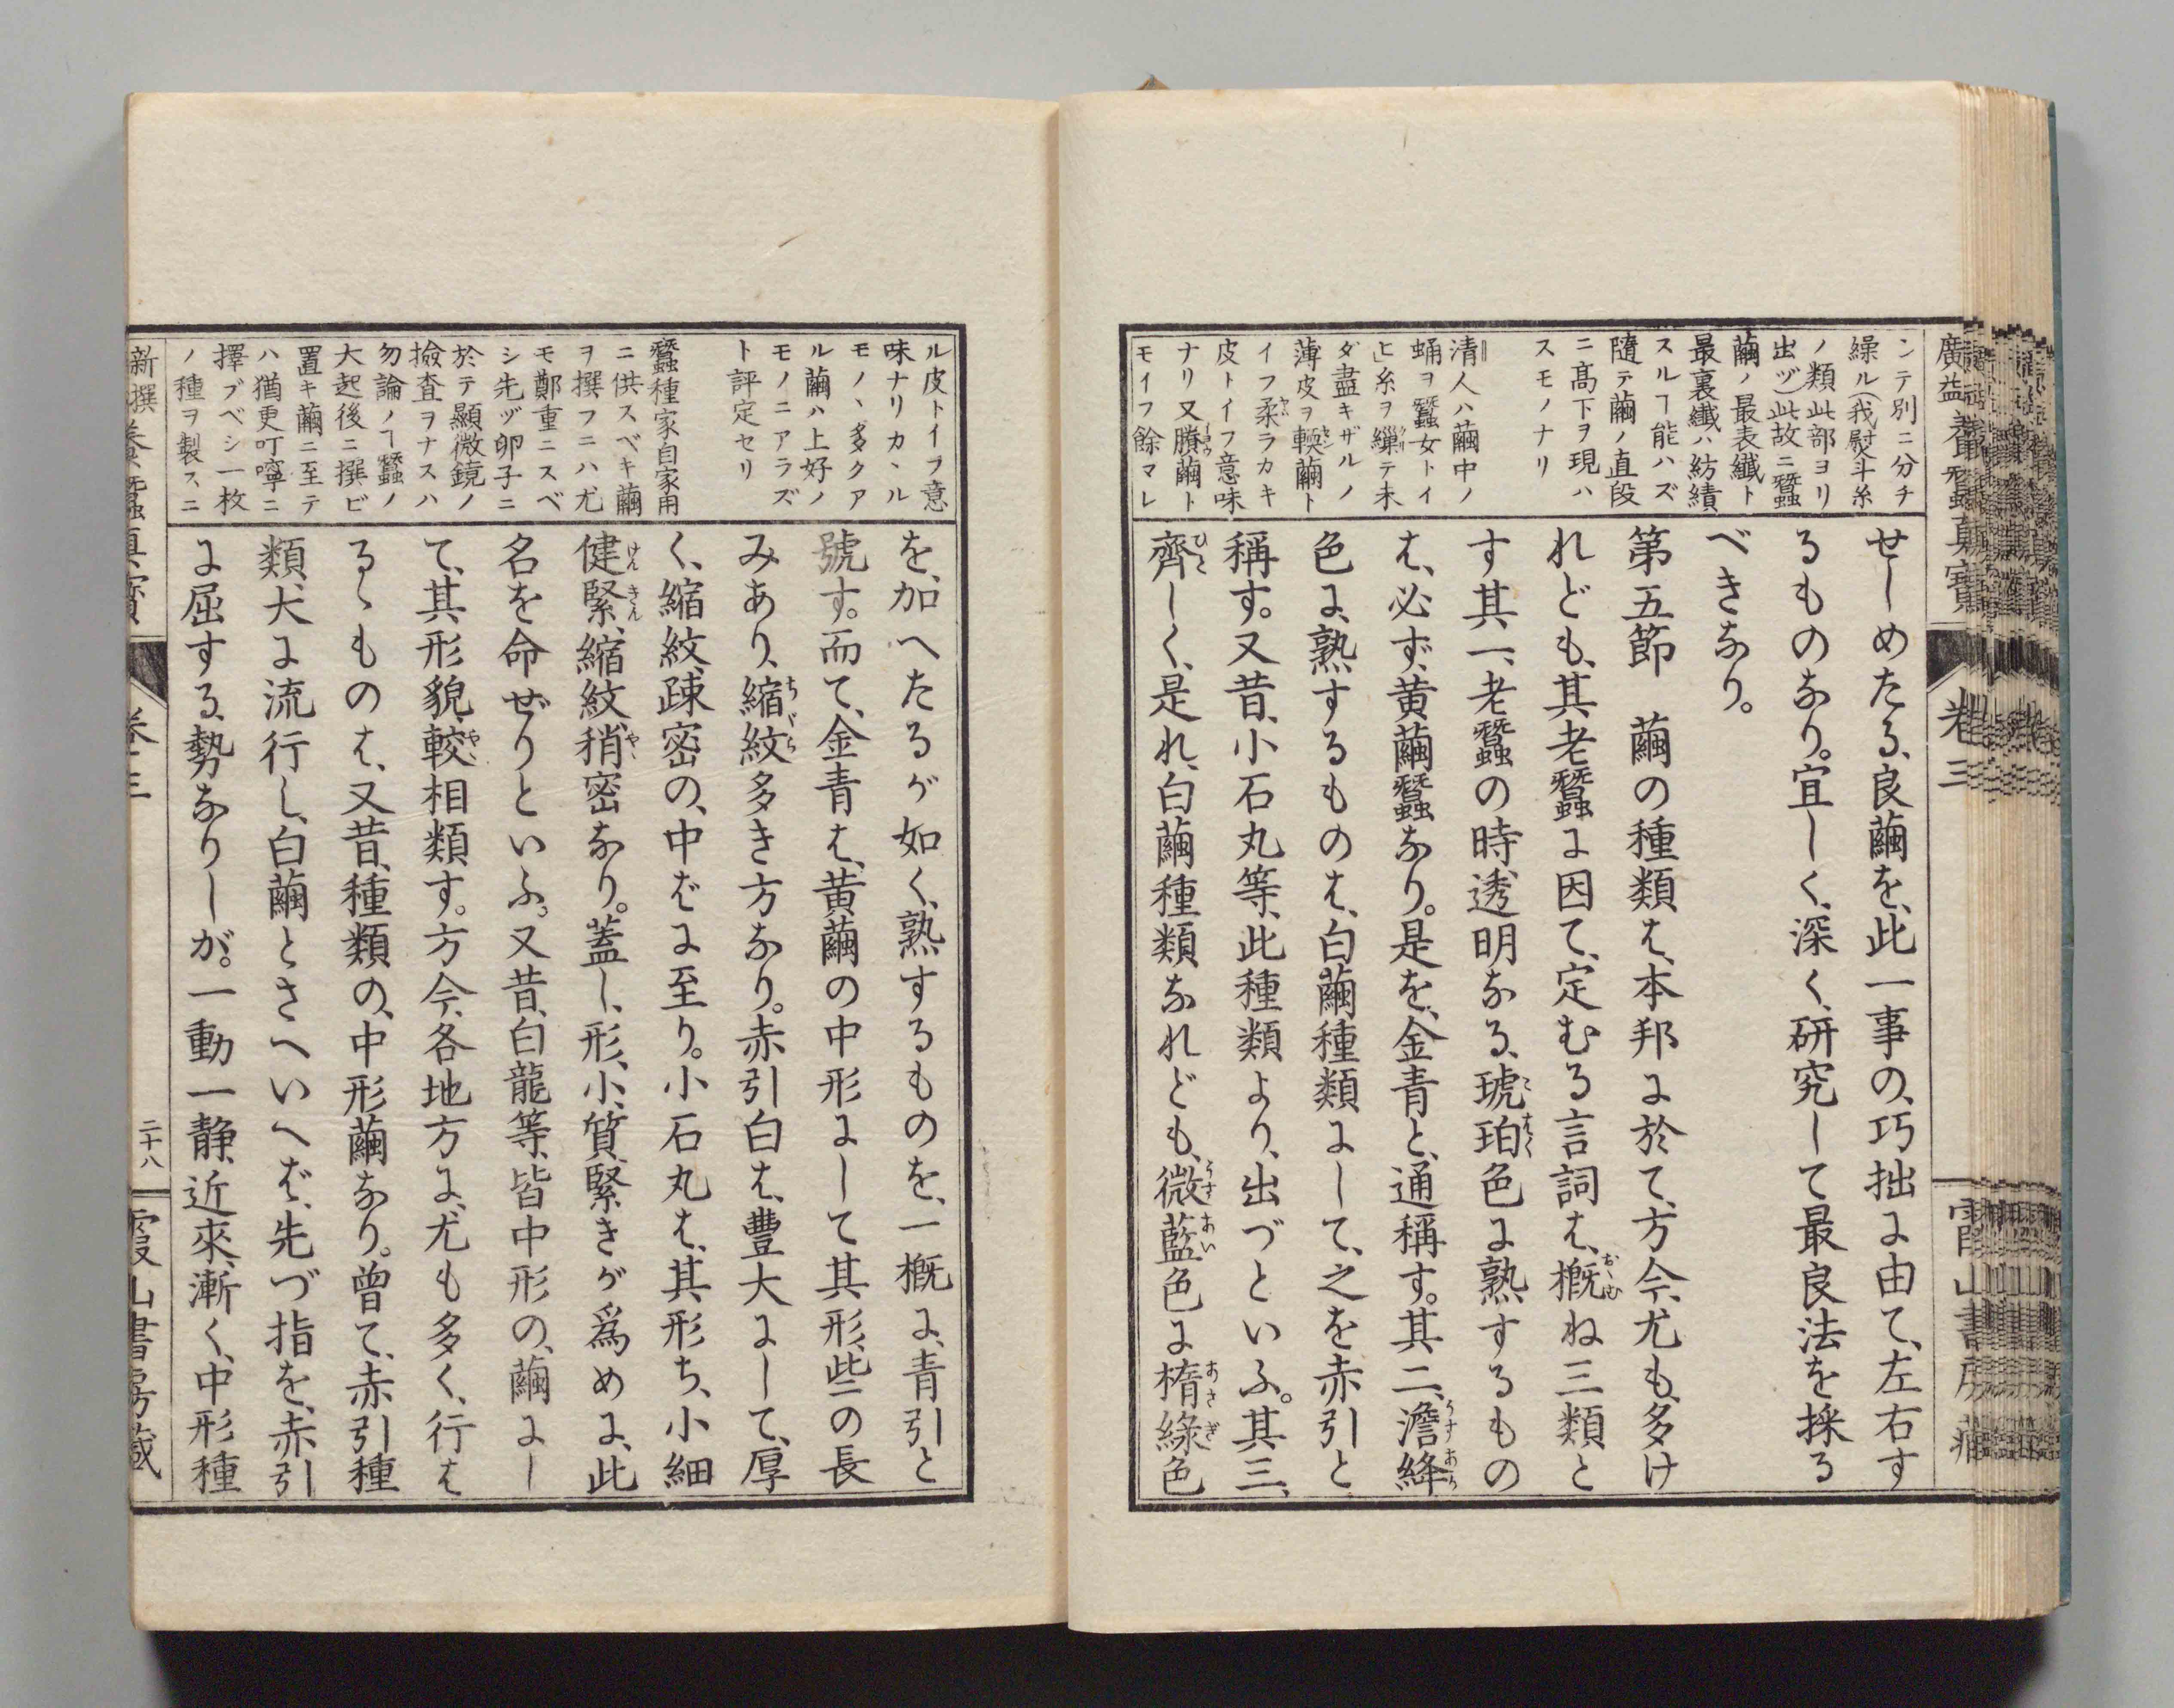 ンテ別ニ分チ
繰ル(我熨斗糸
ノ類此部ヨリ
出ヅ)此故ニ蠶
繭ノ最表纖ト
最裏纖ハ紡績
スルヿ能ハズ
隨テ繭ノ直段
ニ高下ヲ現ハ
スモノナリ
清人ハ繭中ノ
蛹ヲ蠶女トイ
ヒ糸ヲ繅テ未
ダ盡キザルノ
薄皮ヲ輭繭ト
イフ柔ラカキ
皮トイフ意味
ナリ又賸繭ト
モイフ餘マレ
せしめたる、良繭を、此一事の、巧拙に由て、左右す
るものなり。宜しく、深く、研究して最良法を採る
べきなり。
第五節　繭の種類は、本邦に於て、方今、尤も、多け
れども、其老蠶に因て、定むる言詞は、概ね三類と
す其一、老蠶の時、透明なる、琥珀色に熟するもの
は、必ず、黄繭蠶なり。是を、金青と、通稱す。其二、澹絳
色に、熟するものは、白繭種類にして、之を赤引と
稱す。又昔、小石丸等、此種類より、出づといふ。其三、
齊しく、是れ、白繭種類なれども、微藍色に楕綠色
廣益養蠶眞寶
卷三
霞山書房藏
ル皮トイフ意
味ナリカヽル
モノヽ多クア
ル繭ハ上好ノ
モノニアラズ
ト評定セリ
蠶種家自家用
ニ供スベキ繭
ヲ撰フニハ尤
モ鄭重ニスベ
シ先ヅ卵子ニ
於テ顯微鏡ノ
撿査ヲナスハ
勿論ノヿ蠶ノ
大起後ニ撰ビ
置キ繭ニ至テ
ハ猶更叮嚀ニ
擇ブベシ一枚
ノ種ヲ製スニ
を、加へたるが如く、熟するものを、一概に、青引と
號す。而て、金青は、黄繭の中形にして其形、些の長
みあり、縮紋多き方なり。赤引白は、豊大にして、厚
く、縮紋、疎密の、中ばに至り。小石丸は、其形ち、小細
健緊、縮紋稍密なり。蓋し、形、小、質、緊きが爲めに、此
名を命ぜりといふ。又昔、白龍等、皆中形の、繭にし
て、其形貌、較相類す。方今、各地方に、尤も多く、行は
るゝものは、又昔、種類の、中形繭なり。曾て、赤引種
類、大に流行し、白繭とさへいへば、先づ指を、赤引
に屈する、勢なりしが。一動一静、近來、漸く、中形種
新撰養蠶眞寶
卷三
二十八
霞山書房藏